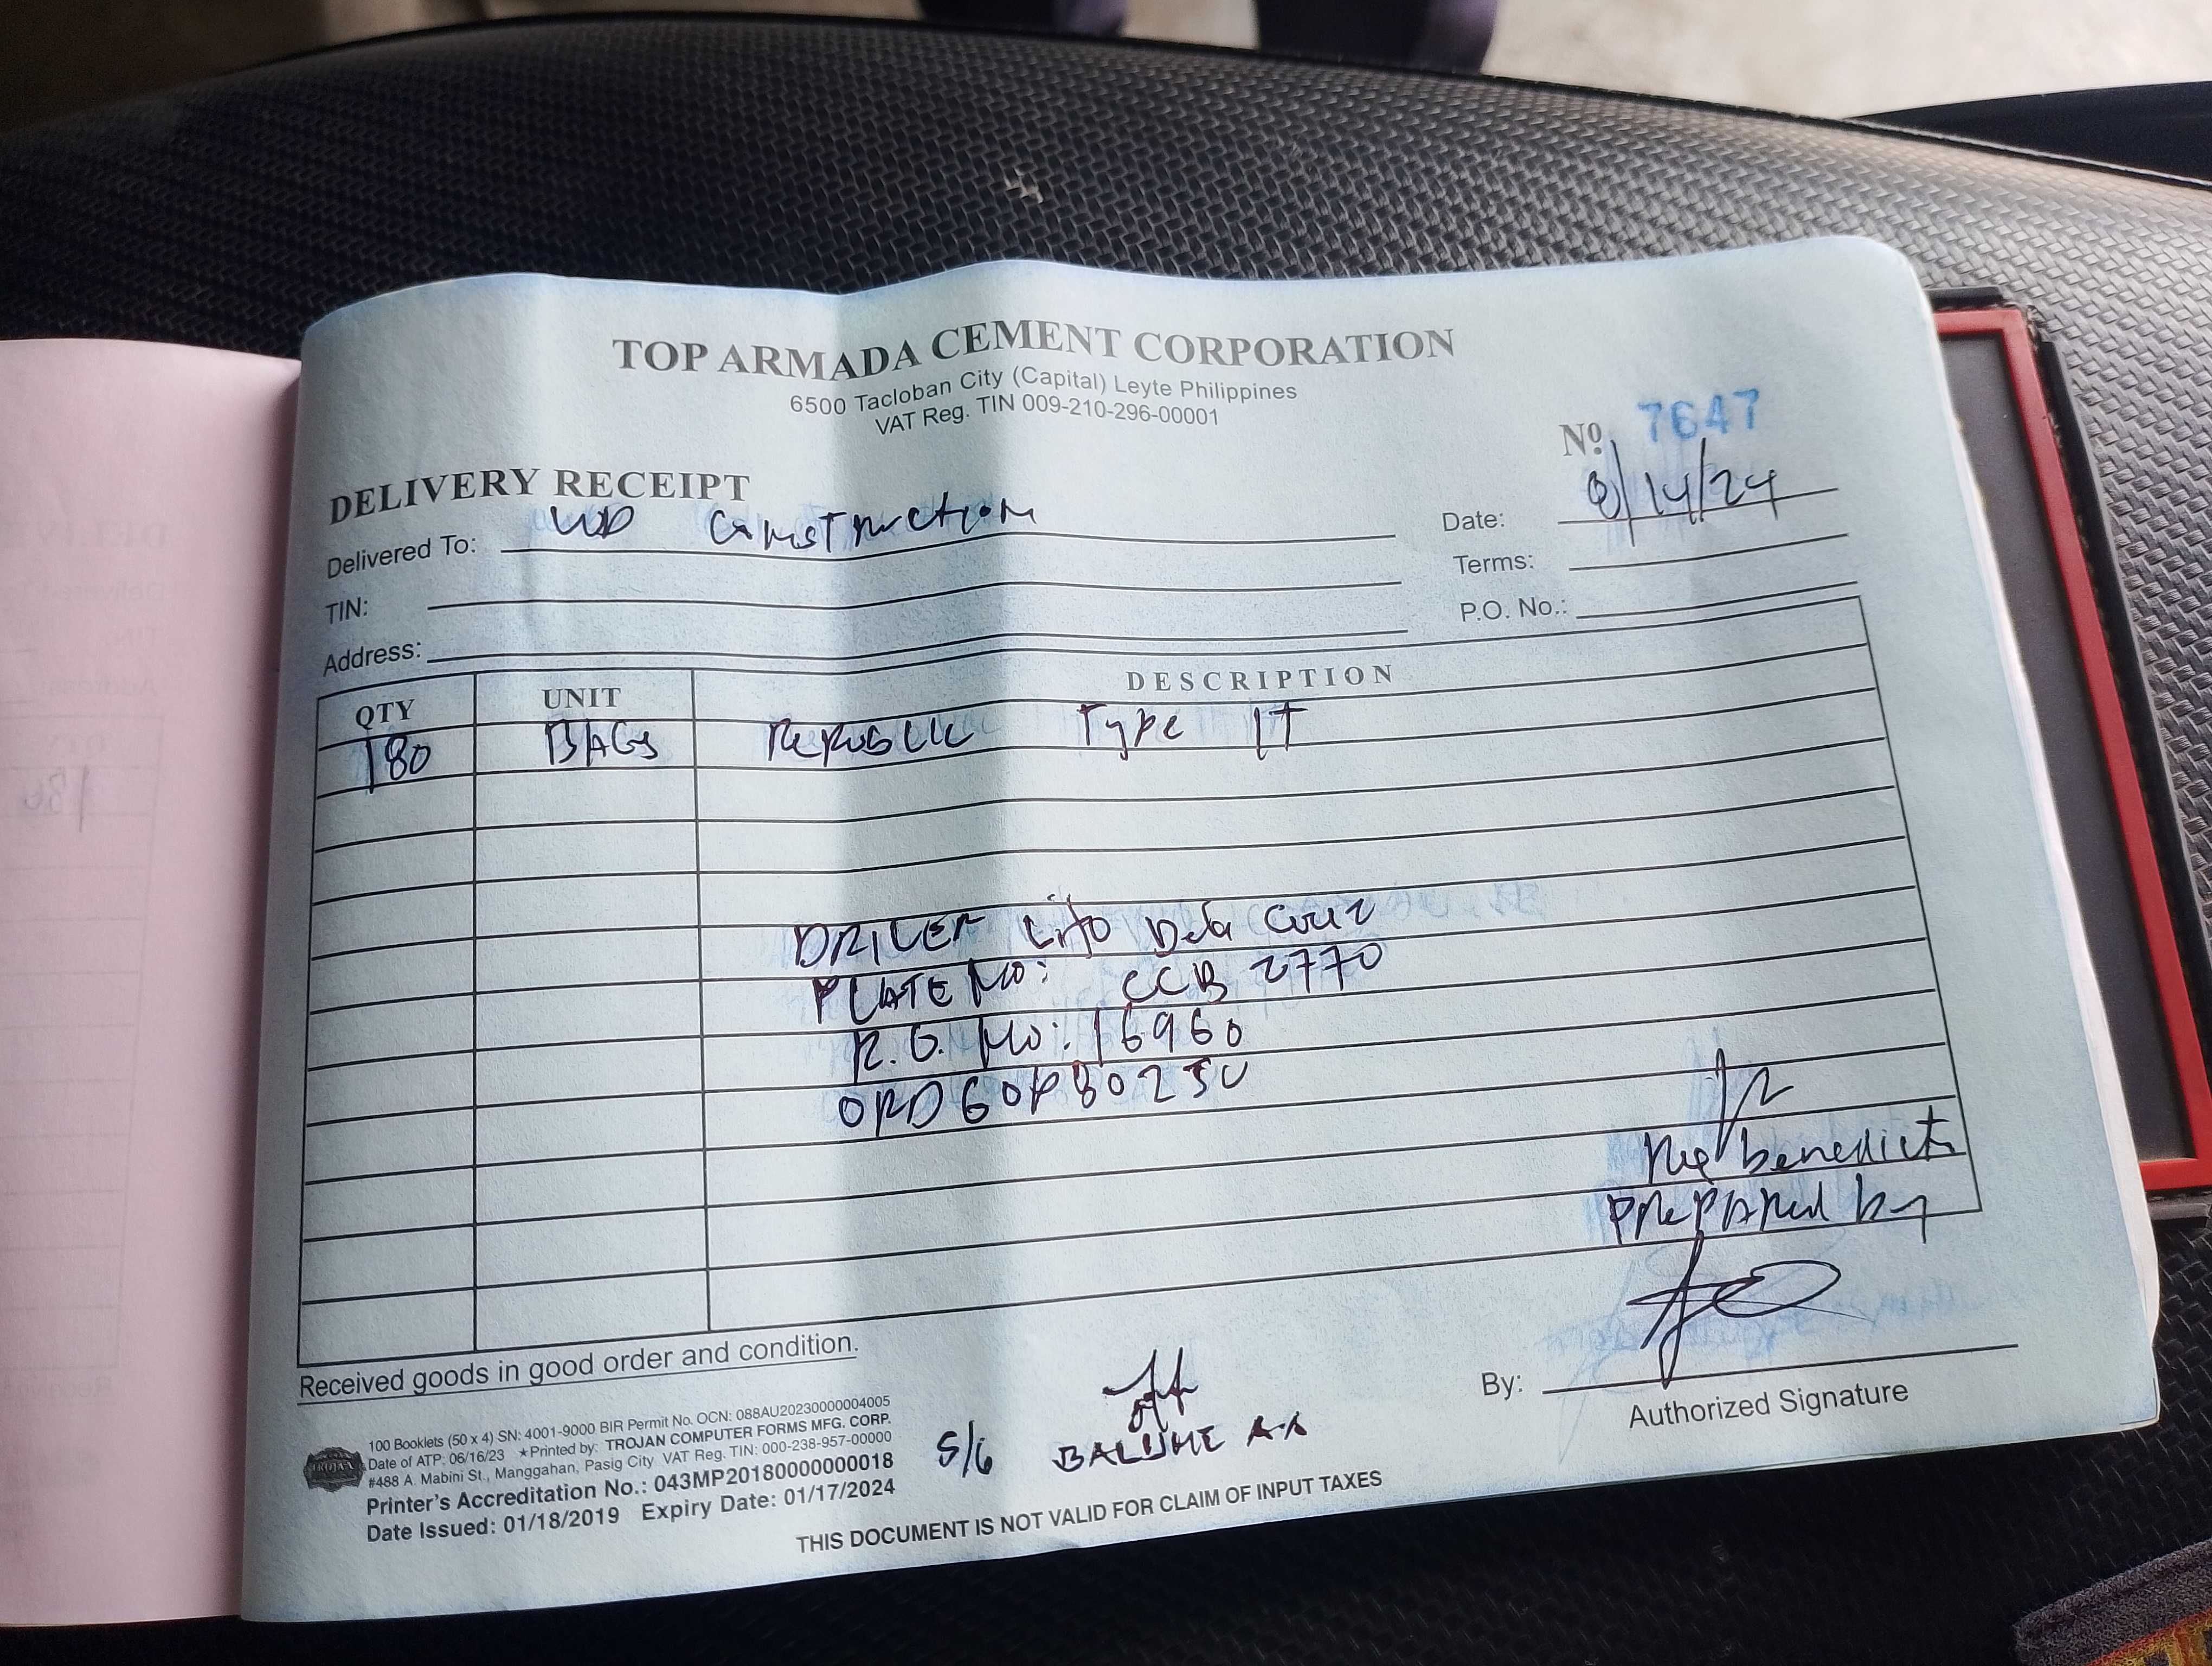 TOP ARMADA CEMENT CORPORATION
6500 Tacloban City (Capital) Leyte Philippines
VAT Reg. TIN 009-210-296-00001
Nº 7647
DELIVERY RECEIPT
Delivered To: Construction
Date: 8/14/24
TIN:
Terms:
Address:
P.O. No.:
QTY UNIT DESCRIPTION
180 BAGS REPUBLIC Type 1T
DRIVER Lito Dela Cruz
PLATE NO: CCB 2770
NO: 16960
benedicto
Prepared by
Received goods in good order and condition.
By:
Authorized Signature
100 Booklets (50 x 4) SN: 4001-9000 BIR Permit No. OCN: 088AU20230000004005
Date of ATP: 06/16/23 ★Printed by: TROJAN COMPUTER FORMS MFG. CORP.
#488 A. Mabini St., Manggahan, Pasig City VAT Reg. TIN: 000-238-957-00000
Printer's Accreditation No.: 043MP20180000000018
Date Issued: 01/18/2019 Expiry Date: 01/17/2024
TROJAN
S/G
THIS DOCUMENT IS NOT VALID FOR CLAIM OF INPUT TAXES